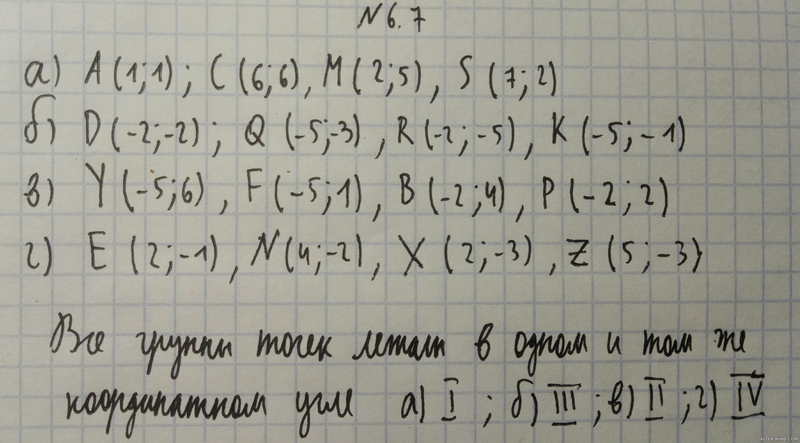 N 6.7
а) A (1;1); C (6;6), M (2;5), S (7;2)
б) D (-2;-2); Q (-5;-3), R (-2;-5), K (-5;-1)
в) Y (-5;6), F (-5;1), B (-2;4), P (-2;2)
г) E (2;-1), N (4;-2), X (2;-3), Z (5;-3)
Все группы точек лежат в одном и том же
координатном угле а) I; б) III; в) II; г) IV